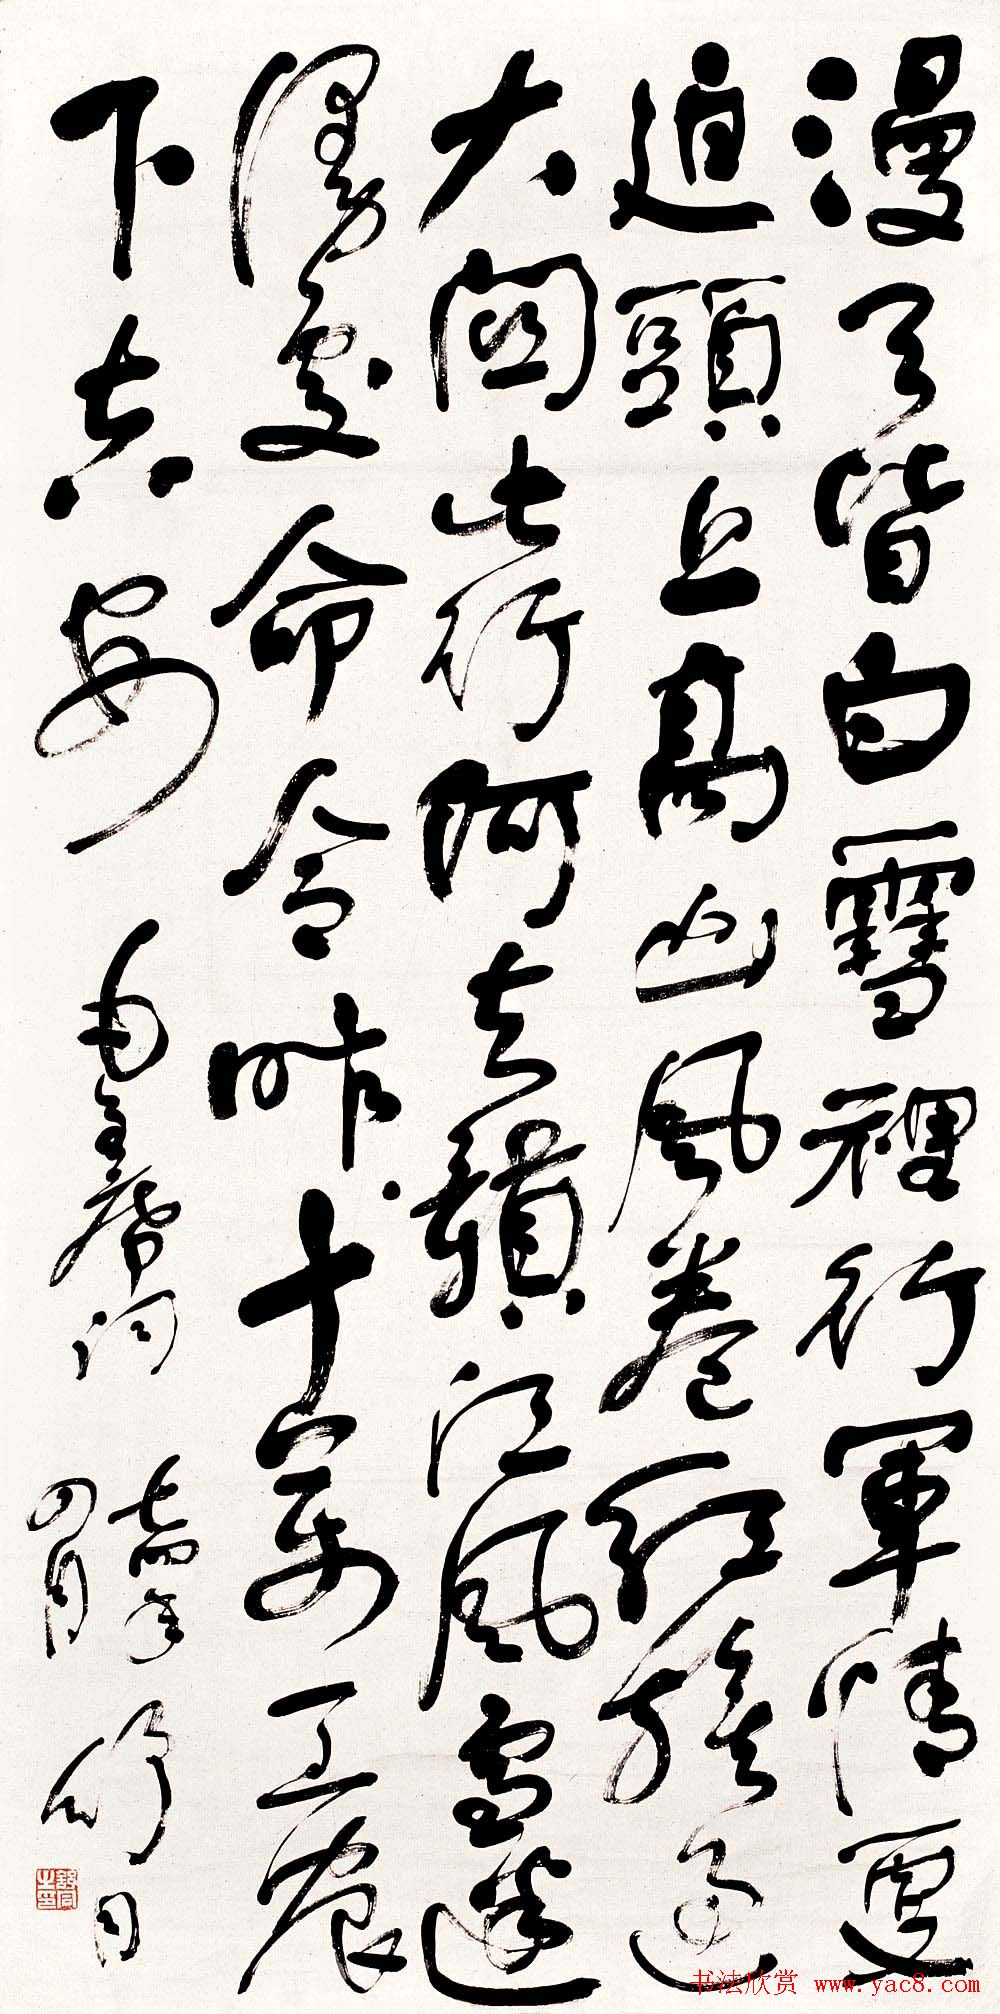 漫天皆白雪裡行軍情更
迫頭上高山風卷紅旗過
大關此行何去贛江風雪迷
漫處命令昨十萬工農
下吉安 毛主席詞 七四年
四月 舒同
舒同之印
书法欣赏 www.yac8.com